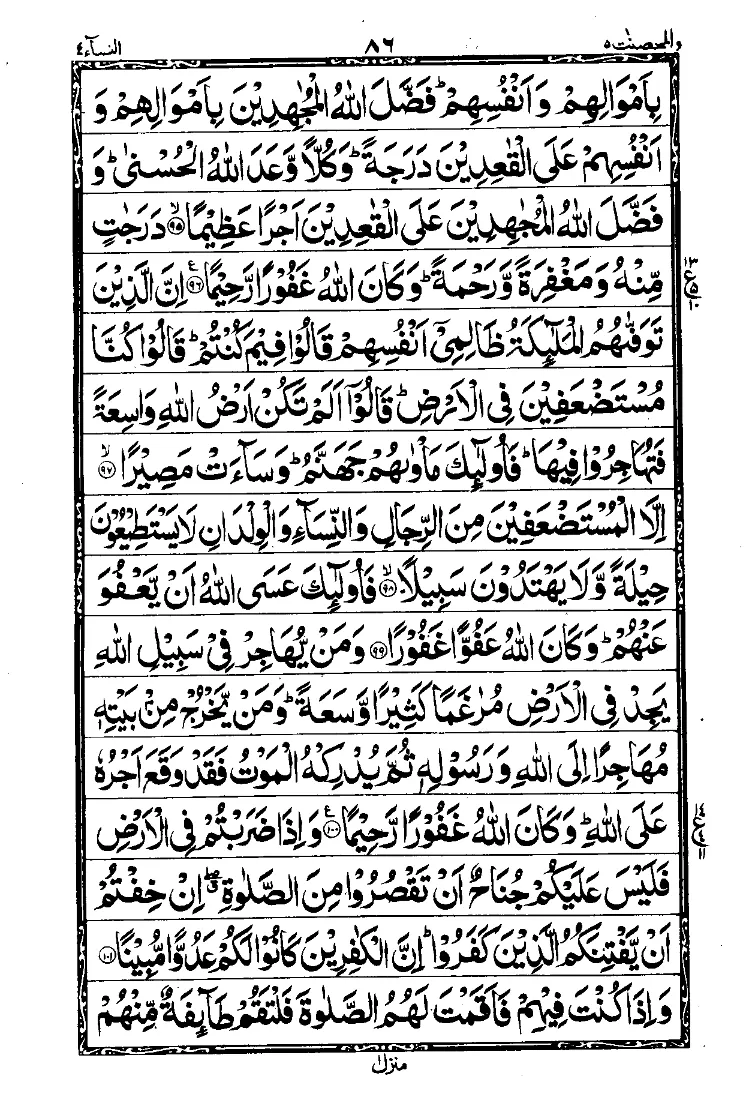 والمحصنت ٥ ٨٦ النسآء ٤
بِاَمْوَالِهِمْ وَاَنْفُسِهِمْ ؕ فَضَّلَ اللّٰهُ الْمُجٰهِدِيْنَ بِاَمْوَالِهِمْ وَ
اَنْفُسِهِمْ عَلَى الْقٰعِدِيْنَ دَرَجَةً ؕ وَكُلًّا وَّعَدَ اللّٰهُ الْحُسْنٰى ؕ وَ
فَضَّلَ اللّٰهُ الْمُجٰهِدِيْنَ عَلَى الْقٰعِدِيْنَ اَجْرًا عَظِيْمًا ۙ﴿٩٥﴾ دَرَجٰتٍ
مِّنْهُ وَمَغْفِرَةً وَّرَحْمَةً ؕ وَكَانَ اللّٰهُ غَفُوْرًا رَّحِيْمًا ﴿٩٦﴾ ع اِنَّ الَّذِيْنَ
تَوَفّٰىهُمُ الْمَلٰٓئِكَةُ ظَالِمِيْۤ اَنْفُسِهِمْ قَالُوْا فِيْمَ كُنْتُمْ ؕ قَالُوْا كُنَّا
مُسْتَضْعَفِيْنَ فِى الْاَرْضِ ؕ قَالُوْۤا اَلَمْ تَكُنْ اَرْضُ اللّٰهِ وَاسِعَةً
فَتُهَاجِرُوْا فِيْهَا ؕ فَاُولٰٓئِكَ مَاْوٰىهُمْ جَهَنَّمُ ؕ وَسَآءَتْ مَصِيْرًا ۙ﴿٩٧﴾
اِلَّا الْمُسْتَضْعَفِيْنَ مِنَ الرِّجَالِ وَالنِّسَآءِ وَالْوِلْدَانِ لَا يَسْتَطِيْعُوْنَ
حِيْلَةً وَّلَا يَهْتَدُوْنَ سَبِيْلًا ۙ﴿٩٨﴾ فَاُولٰٓئِكَ عَسَى اللّٰهُ اَنْ يَّعْفُوَ
عَنْهُمْ ؕ وَكَانَ اللّٰهُ عَفُوًّا غَفُوْرًا ﴿٩٩﴾ وَمَنْ يُّهَاجِرْ فِيْ سَبِيْلِ اللّٰهِ
يَجِدْ فِى الْاَرْضِ مُرٰغَمًا كَثِيْرًا وَّسَعَةً ؕ وَمَنْ يَّخْرُجْ مِنْۢ بَيْتِهٖ
مُهَاجِرًا اِلَى اللّٰهِ وَرَسُوْلِهٖ ثُمَّ يُدْرِكْهُ الْمَوْتُ فَقَدْ وَقَعَ اَجْرُهٗ
عَلَى اللّٰهِ ؕ وَكَانَ اللّٰهُ غَفُوْرًا رَّحِيْمًا ﴿١٠٠﴾ ع وَاِذَا ضَرَبْتُمْ فِى الْاَرْضِ
فَلَيْسَ عَلَيْكُمْ جُنَاحٌ اَنْ تَقْصُرُوْا مِنَ الصَّلٰوةِ ۖ اِنْ خِفْتُمْ
اَنْ يَّفْتِنَكُمُ الَّذِيْنَ كَفَرُوْا ؕ اِنَّ الْكٰفِرِيْنَ كَانُوْا لَكُمْ عَدُوًّا مُّبِيْنًا ﴿١٠١﴾
وَاِذَا كُنْتَ فِيْهِمْ فَاَقَمْتَ لَهُمُ الصَّلٰوةَ فَلْتَقُمْ طَآئِفَةٌ مِّنْهُمْ
منزل ١